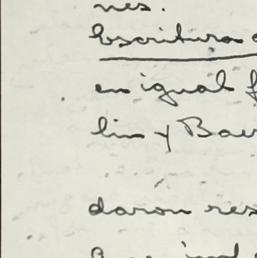 nes.
Escritura
en igual f
lin y Bav
daron res